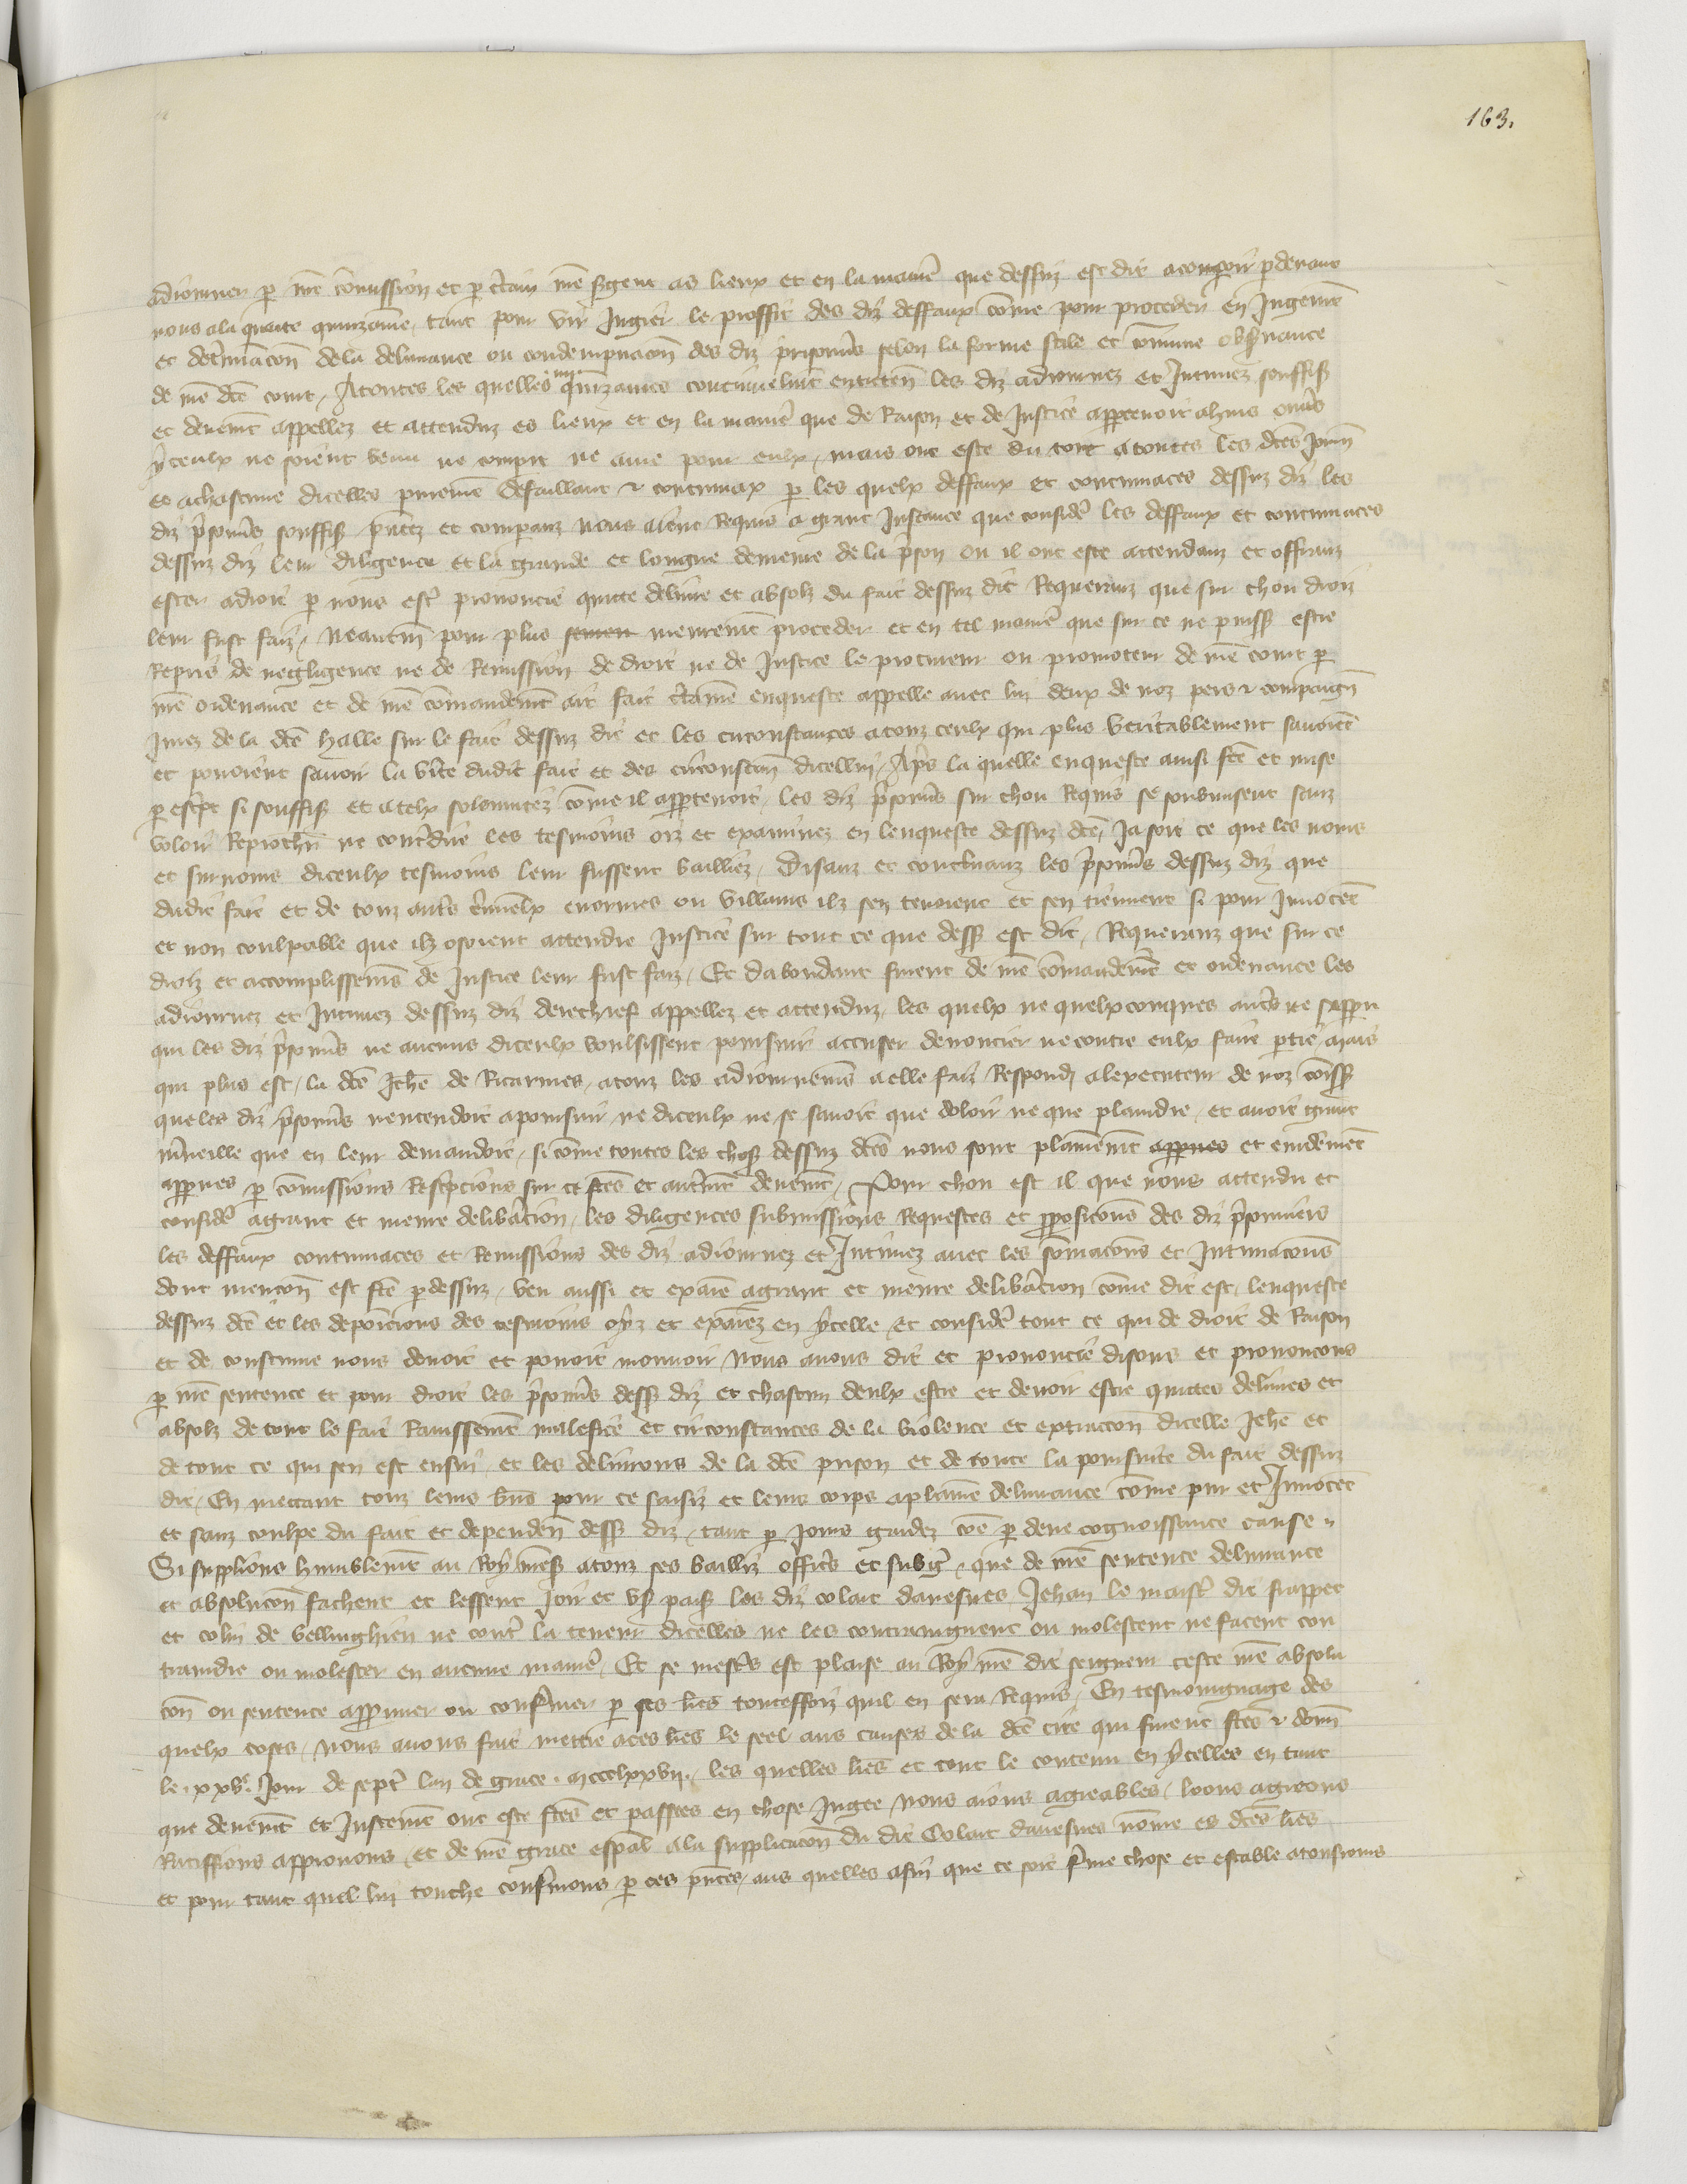 163.
adiourner p nre comission et p certain nre sergent as lieux et en la manie que dessuz est dit a comparoir pdevant
nous a la quarte quinzaine, tant pour vir jugier le proffit des diz deffaux come pour proceder en jugemt
et determacon de la delivrance ou condempnacon des diz prisonns selon la forme stile et comune observance
de nre dce court, A toutes les quelles iiii quinzaines continuelmt entreten les diz adiournez et intimez souffiss
et deuemt appellez et attenduz es lieux et en la manie que de raison et de justice appartenoit alzins onqs
yceulx ne soient venu ne comparu ne autre pour eulx, mais ont este du tout a toutes les dces journ
et a chascune dicelles purement defaillant & contumax p les quelx deffaux et contumaces dessuz diz les
diz prisonns souffiss pntez et comparanz nous aient requis a grant instance que consider les deffaux et contumaces
dessuz diz leur diligence et la grande et longue demeure de la prison ou il ont este attendanz et offranz
ester a droit p nous estre prononcie quitte delivre et absolz du fait dessuz dit requeranz que sur chou droiz
leur fust faiz, neantm pour plus meurement proceder et en tel manie que sur ce ne puiss estre
repris de negligence ne de remission de droit ne de justice le procureur ou promoteur de nre court p
nre ordenance et de nre comandemt ait fait certaine enqueste appelle avec lui deux de noz pers & compaign
jurez de la dce halle sur le fait dessuz dit et les circonstances a touz ceulx qui plus veritablement savoient
et povoient savoir la vite dudit fait et des circonstan dicellui, Apres la quelle enqueste ainsi fce et mise
p escript si souffiss et a telx solemnitez come il appartenoit, les diz prisonns sur chou requis se soubmisent sanz
voloir reprochier ne contredire les tesmoins oiz et examinez en lenqueste dessuz dce, ja soit ce que les noms
et surnoms diceulx tesmoins leur fussent bailliez, Disanz et concluanz les prisonns dessuz diz que
dudit fait et de touz autres criminelx enormes ou villains ilz sen tenoient et sen tiennent si pour innocent
et non coulpable que ilz osoient attendre justice sur tout ce que dess est dit, Requeranz que sur ce
droiz et accomplissemt de justice leur fust faiz, Et dabondant furent de nre comandemt et ordenance les
adiournez et intimez dessuz diz derechief appellez et attenduz, les quelx ne quelxconques autres ne s apparu
qui les diz prisonns ne aucuns diceulx voulsissent poursuir accuser denoncier ne contre eulx faire partie, mais
qui plus est, la dce Jehe de Ricarmes, a touz les adiournemes a elle faiz respondi a lexecuteur de noz comiss
que les diz prisonns nentendoit a poursuir ne diceulx ne se savoit que doloir ne que plaindre, et avoit grant
merveille que en leur demandoit, si come toutes les choses dessuz dces nous sont plainemt et evidemt
apparues p comissions rescripcions sur ce fces et autremt deuemt, Pour chou est il que nous attendu et
consider a grant et meure deliberacion, les diligences submissions requestes et pposicons des diz prisonniers
les deffaux contumaces et remissions des diz adiournez et intimez avec les somacons et intimacons
dont mencon est fce p dessuz, veu aussi et examie a grant et meure deliberacion come dit est, lenqueste
dessuz dce et les deposicions des tesmoins oyz et examiez en ycelle et consider tout ce qui de droit de raison
et de coustume nous devoit et povoit mouvoir Nous avons dit et prononcie disons et prononcons
p nre sentence et pour droit les prisonns dess diz et chascun deulx estre et devoir estre quittes delivres et
absolz de tout le fait ravissement malefice et circonstances de la violence et extraccon dicelle Jehe et
de tout ce qui sen est ensui, et les delivrons de la dce prison et de toute la poursuite du fait dessuz
dit, En mettant touz leurs biens pour ce saisiz et leurs corps a plaine delivrance come pur et innocent
et sanz coulpe du fait et dependen dess diz, tant p jours gardez coe p deue cognoissance cause.
Si supplions humblement au Roy nress a touz ses bailliz officrs et subgiez, que de nre sentence delivrance
et absolucon fachent et lessent joir et us paisi les diz Colart Davesnes, Jehan le maistre dit frappet
et Colin de Bellinghien ne contre la teneur dicelles ne les contraingnent ou molestent ne facent con
traindre ou molester en aucune manie, Et se mestrs est plaise au Roy nre dit seigneur ceste nre absolu
con ou sentence approuver ou confirmer p ses lres toutesfoiz quil en sera requis, En tesmoingnage des
quelx coses, Nous avons fait mettre a ces lres le seel aus causes de la dce cite qui furent fces & donn
le .xxve. jour de septr lan de grace mccclxxvii, les quelles lres et tout le contenu en ycelles en tant
que deuemt et justemt ont este fces et passees en chose jugee Nous aions agreables, loons agreons
ratiffions approuvons, et de nre grace espal a la supplicacon du dit Colart Davesnes nome es dces lres
et pour tant quil lui touche confirmons p ces pntes, aus quelles afin que ce soit ferme chose et estable a tousiours